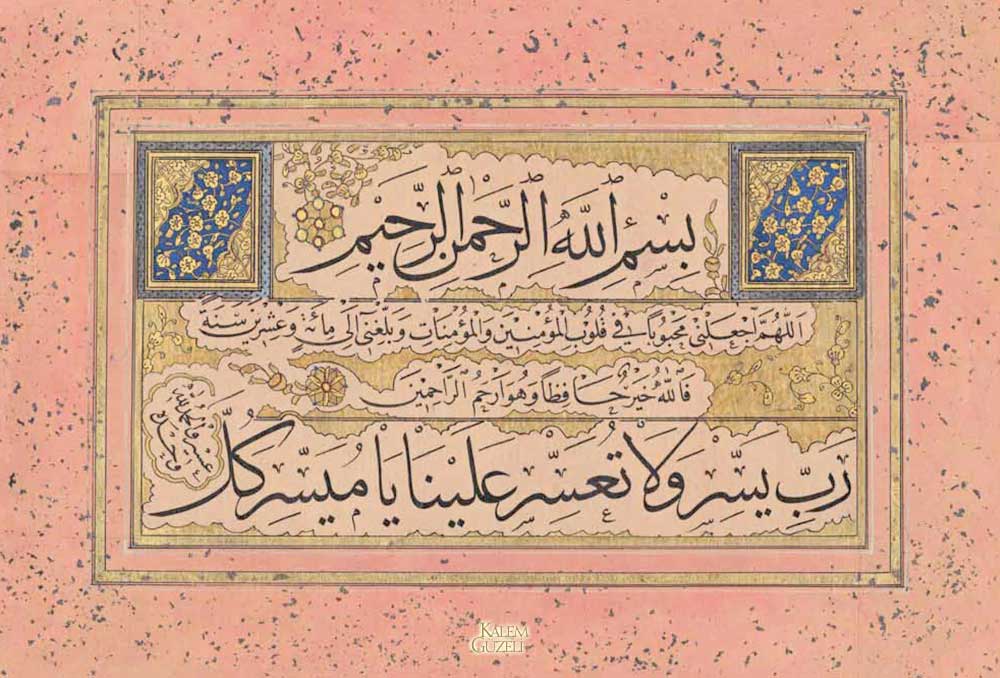 بِسْمِ اللّٰهِ الرَّحْمٰنِ الرَّحِيمِ
اَللّٰهُمَّ اجْعَلْنِى مَحْبُوبًا فِى قُلُوبِ الْمُؤْمِنِينَ وَالْمُؤْمِنَاتِ وَبَلِّغْنِى اِلَى مِائَةٍ وَعِشْرِينَ سَنَةً
فَاللّٰهُ خَيْرٌ حَافِظًا وَهُوَ اَرْحَمُ الرَّاحِمِينَ
رَبِّ يَسِّرْ وَلَا تُعَسِّرْ عَلَيْنَا يَا مُيَسِّرَ كُلِّ
عَسِيرٍ وَالْحَمْدُ لِلّٰهِ
وَحْدَهُ
KALEM
GÜZELİ